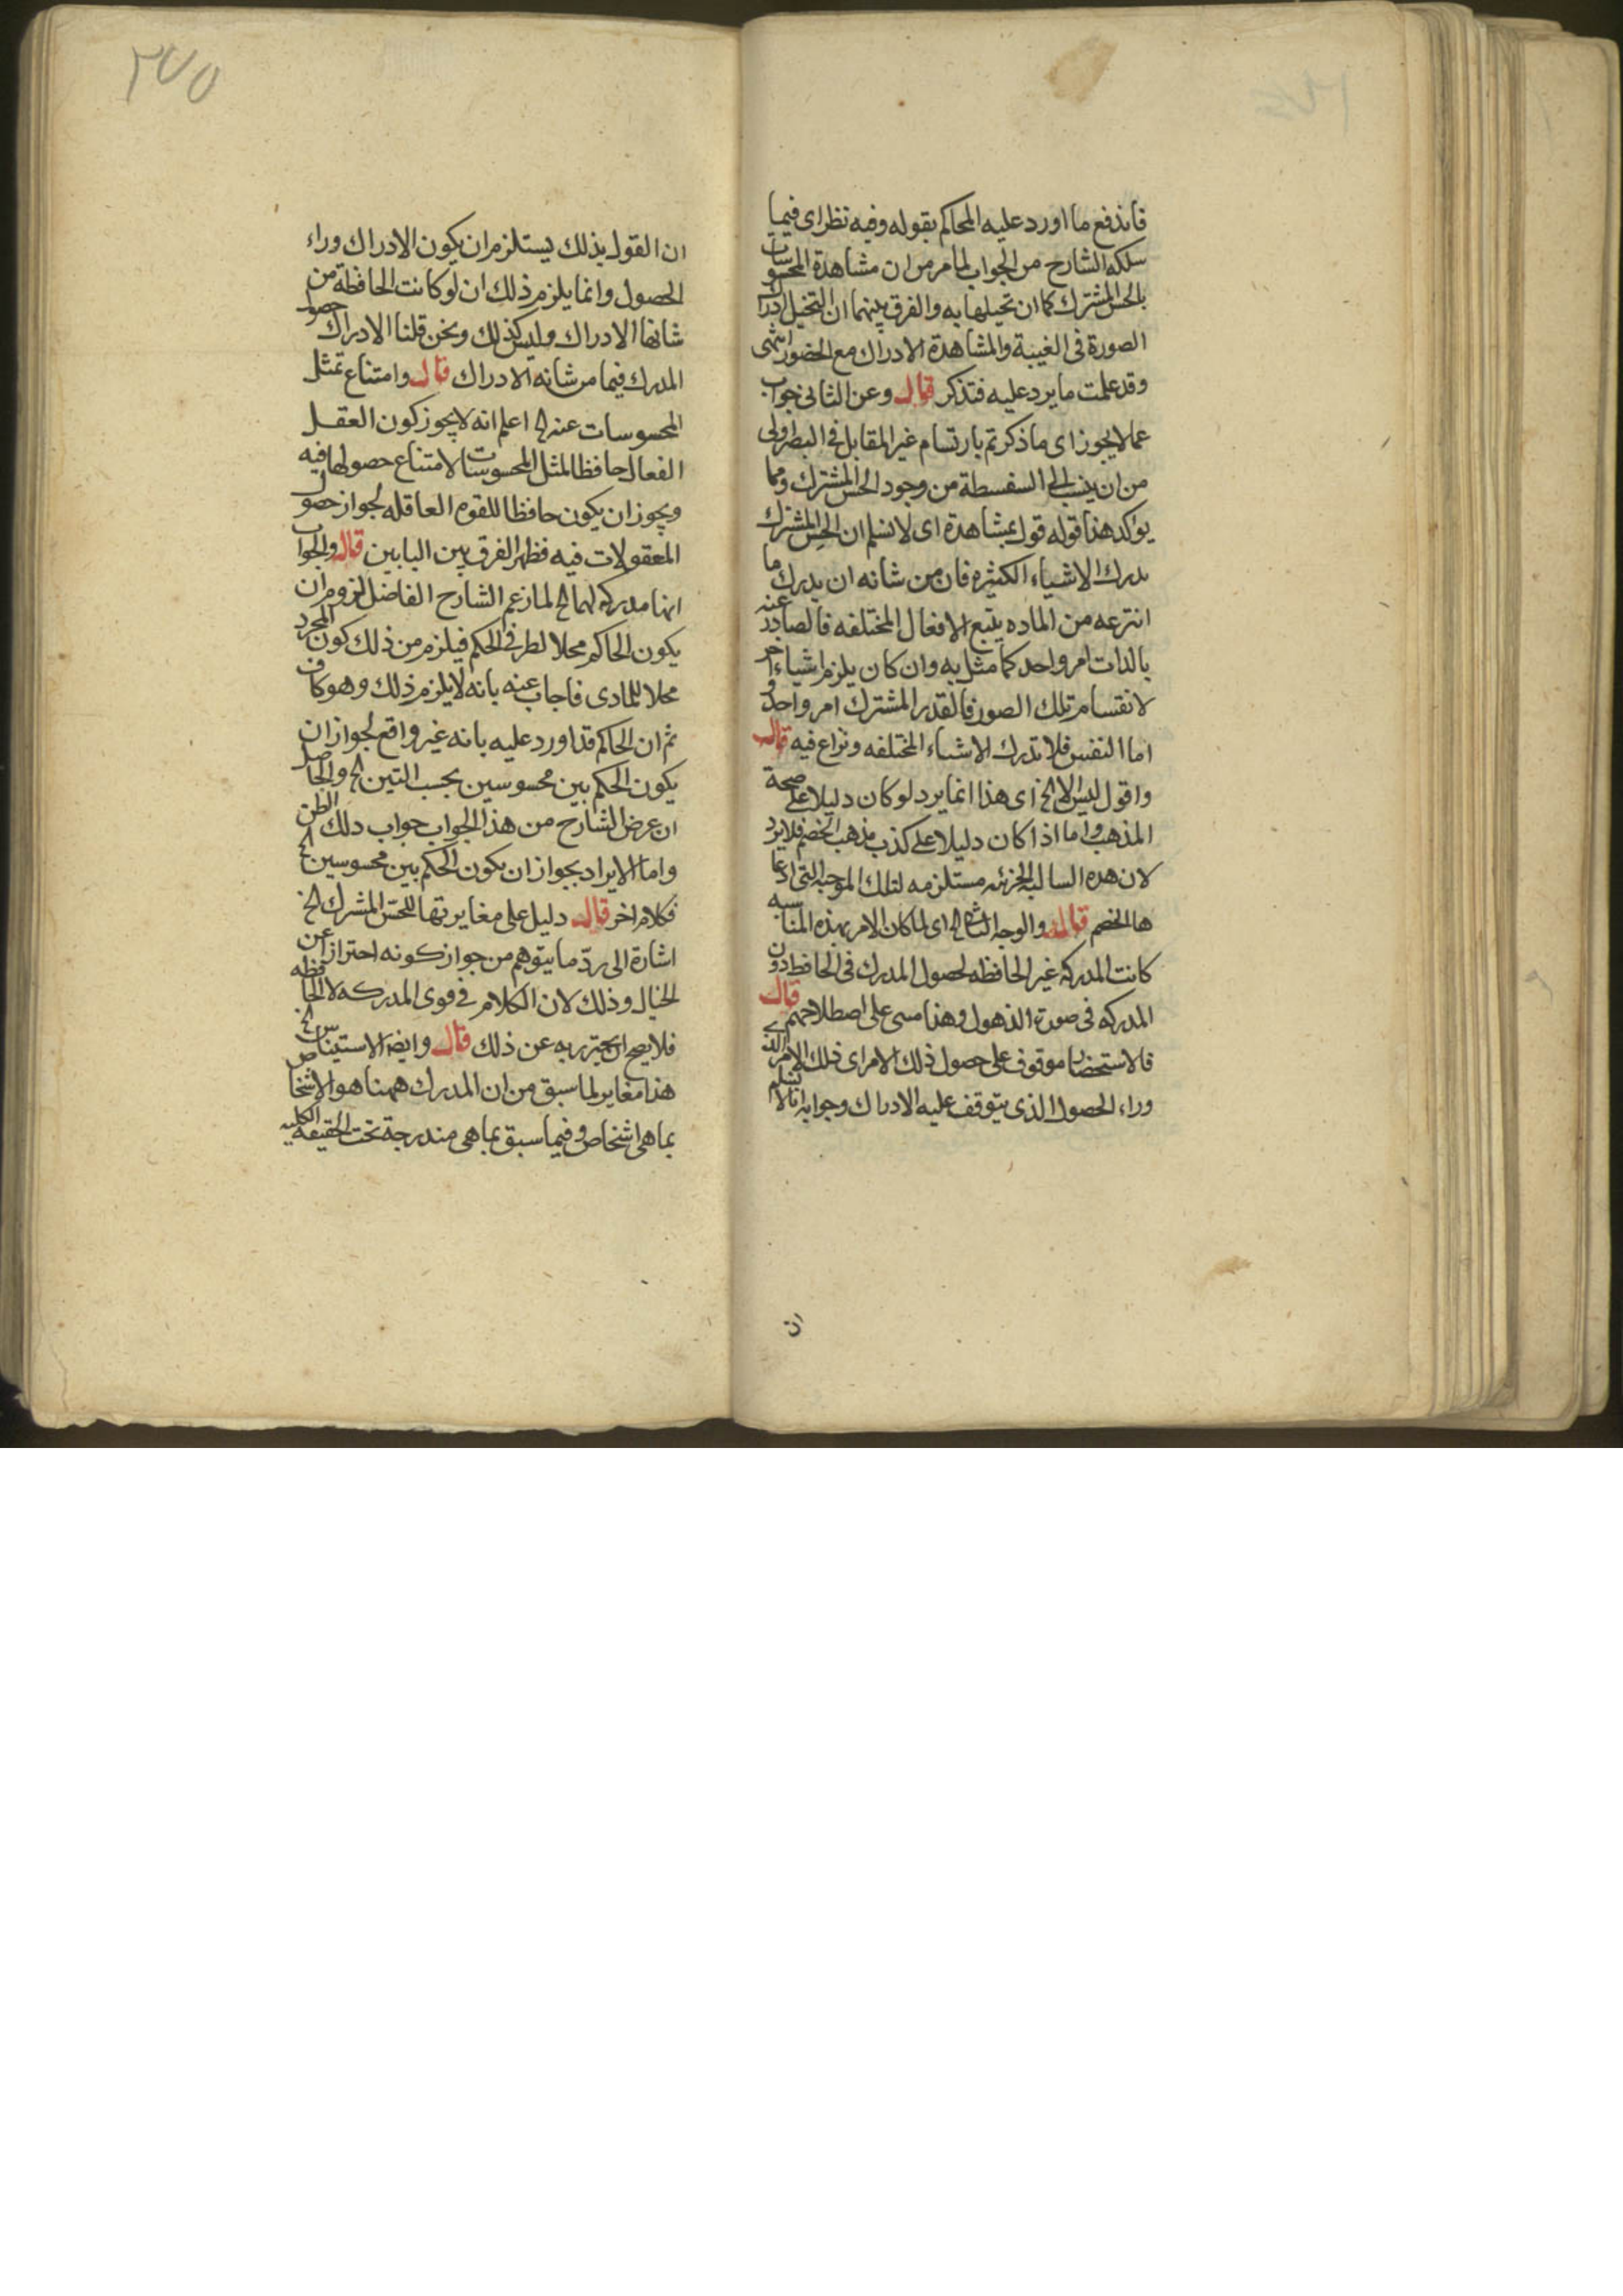 فاندفع ما اورد عليه المحاكم بقوله وفيه نظر اى فيما
سلكه الشارح من الجواب لما مر من ان مشاهدة المحسوسات
بالحس المشترك كما ان تخيلها به والفرق بينهما ان التخيل ادراك
الصورة فى الغيبة والمشاهدة الادراك مع الحضور انتهى
وقد علمت ما يرد عليه فتذكر قال وعن الثانى جواب
عما لا يجوز اى ما ذكرتم بارتسام غير المقابل فى البصر اولى
من ان ينسب الى السفسطة من وجود الحس المشترك ومما
يواكد هذا قوله قول بمشاهدة اى لا نسلم ان الحس المشترك
يدرك الاشياء الكثيره فان من شانه ان يدرك ما
انتزعه من الماده يتبع الافعال المختلفه فالصادر عنه
بالذات امر واحد كما مثل به وان كان يلزم اشياء اخر
لانقسام تلك الصور فالقدر المشترك امر واحد و
اما النفس فلا تدرك الاشياء المختلفه ونزاع فيه قال
واقول ليس الا الخ اى هذا انما يرد لو كان دليلا على صحة
المذهب واما اذا كان دليلا على كذب مذهب الخصم فلا يرد
لان هذه السالبه الجزئيه مستلزمه لتلك الموجبه التى ادعا
ها الخصم قال والوجه الثانى الخ اى لما كان الامر بهذه المناسبه
كانت المدركه غير الحافظه لحصول المدرك فى الحافظ دون
المدركه فى صورة الذهول وهذا مبنى على اصطلاحهم قال
فالاستحضار موقوف على حصول ذلك الامر اى ذلك الامر الذى
وراء الحصول الذى يتوقف عليه الادراك وجوابه انا لا نسلم
ان
٢٧٥
ان القول بذلك يستلزم ان يكون الادراك وراء
الحصول وانما يلزم ذلك ان لو كانت الحافظة من
شانها الادراك وليس كذلك ونحن قلنا الادراك حصول
المدرك فيما من شانه الادراك قال وامتناع تمثل
المحسوسات عنه الخ اعلم انه لا يجوز كون العقل
الفعال حافظا لمثل المحسوسات لامتناع حصولها فيه
ويجوز ان يكون حافظا للقوه العاقله لجواز حصول
المعقولات فيه فظهر الفرق بين البابين قال والجواب
انها مدركه لهما الخ لما زعم الشارح الفاضل لزوم ان
يكون الحاكم محلا لطرفى الحكم فيلزم من ذلك كون المجرد
محلا للمادى فاجاب عنه بانه لا يلزم ذلك وهو كاف
ثم ان الحاكم قد اورد عليه بانه غير واقع لجواز ان
يكون الحكم بين محسوسين بحسب التين الخ والحاصل
ان عرض الشارح من هذا الجواب جواب ذلك الظن
واما الايراد بجواز ان يكون الحكم بين محسوسين الخ
فكلام اخر قال دليل على مغايرتها للحس المشترك الخ
اشارة الى رد ما يتوهم من جواز كونه احترازا عن
الخيال وذلك لان الكلام فى قوى المدركه لا الحافظه
فلا يصح ان يحترز به عن ذلك قال وايضا الاستيناس الخ
هذا مغاير لما سبق من ان المدرك ههنا هو الاشخاص
بما هى اشخاص وفيما سبق بما هى مندرجة تحت الحقيقه الكليه